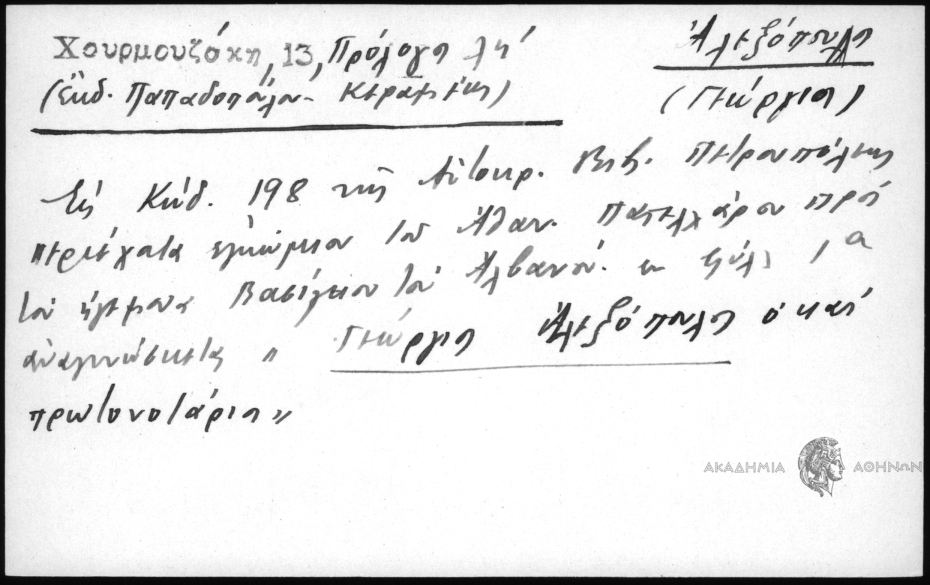 Χουρμουζάκη, 13, Πρόλογος λη΄
(ἐκδ. Παπαδοπούλου - Κεραμέως)
Ἀλεξόπουλος
(Γεώργιος)
Εἰς Κώδ. 198 τῆς Αὐτοκρ. Βιβ. Πετρουπόλεως
περιέχεται ἐγκώμιον τοῦ Ἀθαν. πρός
τόν ἡγεμόνα Βασίλειον τόν Ἀλβανόν. ἐν φύλ. 1α
ἀναγινώσκεται "Γεώργιος Ἀλεξόπουλος ὁ καί
πρωτονοτάριος"
ΑΚΑΔΗΜΙΑ ΑΘΗΝΩΝ